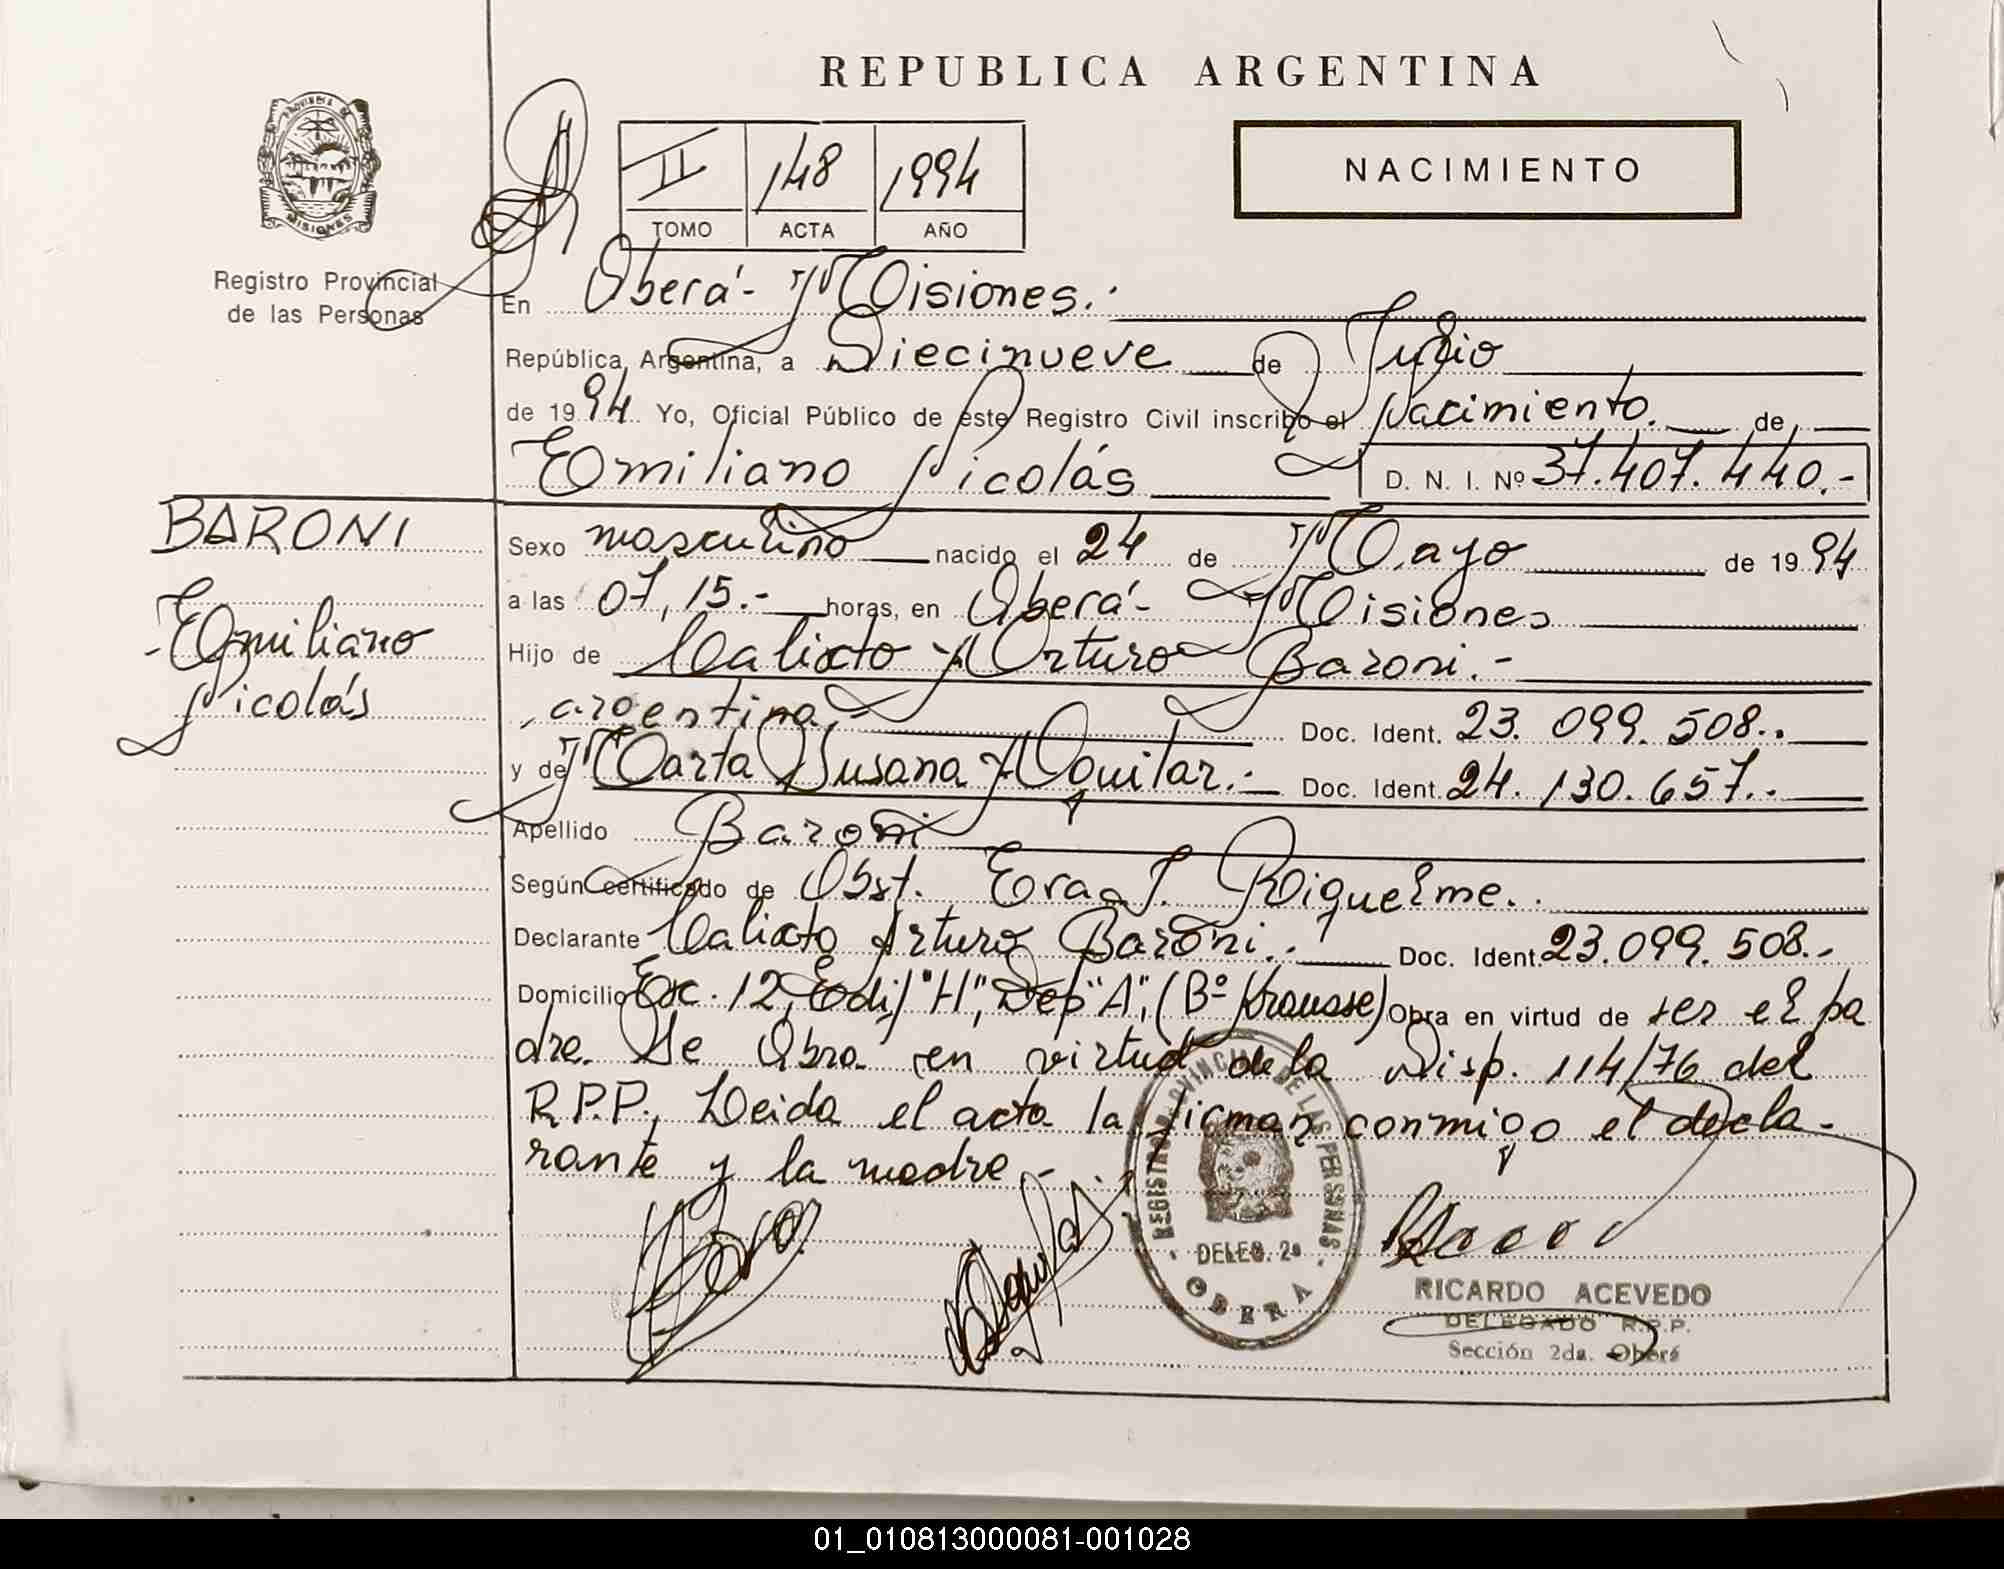 REPUBLICA ARGENTINA
PROVINCIA DE
MISIONES
Registro Provincial
de las Personas
II 148 1994
TOMO ACTA AÑO
NACIMIENTO
En Oberá - Misiones.-
República Argentina, a Diecinueve de Julio
de 1994 Yo, Oficial Público de este Registro Civil inscribo el Nacimiento. de
Emiliano Nicolás D. N. I. Nº 37.407.440.-
BARONI
Emiliano
Nicolás
Sexo masculino nacido el 24 de Mayo de 1994
a las 07,15.- horas, en Oberá - Misiones
Hijo de Calixto Arturo Baroni.-
argentina.- Doc. Ident. 23.099.508.-
y de Marta Susana Aquilar.- Doc. Ident. 24.130.657.-
Apellido Baroni
Según certificado de Obst. Eva J. Riquelme.-
Declarante Calixto Arturo Baroni.- Doc. Ident. 23.099.508.-
Domicilio Esc. 12, Edif "H", Dep "A", (Bº Krausse) Obra en virtud de ser el pa
dre. Se Obra en virtud de la Disp. 114/76 del
R.P.P., Leida el acta la firman conmigo el decla-
rante y la madre.-
REGISTRO PROVINCIAL DE LAS PERSONAS
DELEG. 2ª
OBERA
RICARDO ACEVEDO
DELEGADO R.P.P.
Sección 2da. Oberá
01_010813000081-001028